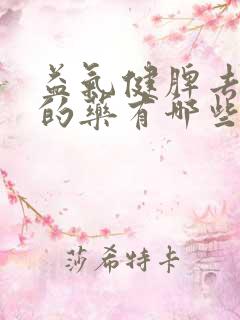 益氣健脾去
的藥有哪些
莎希特卡